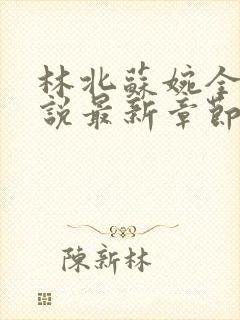 林北蘇婉全
說最新章節
陳新林